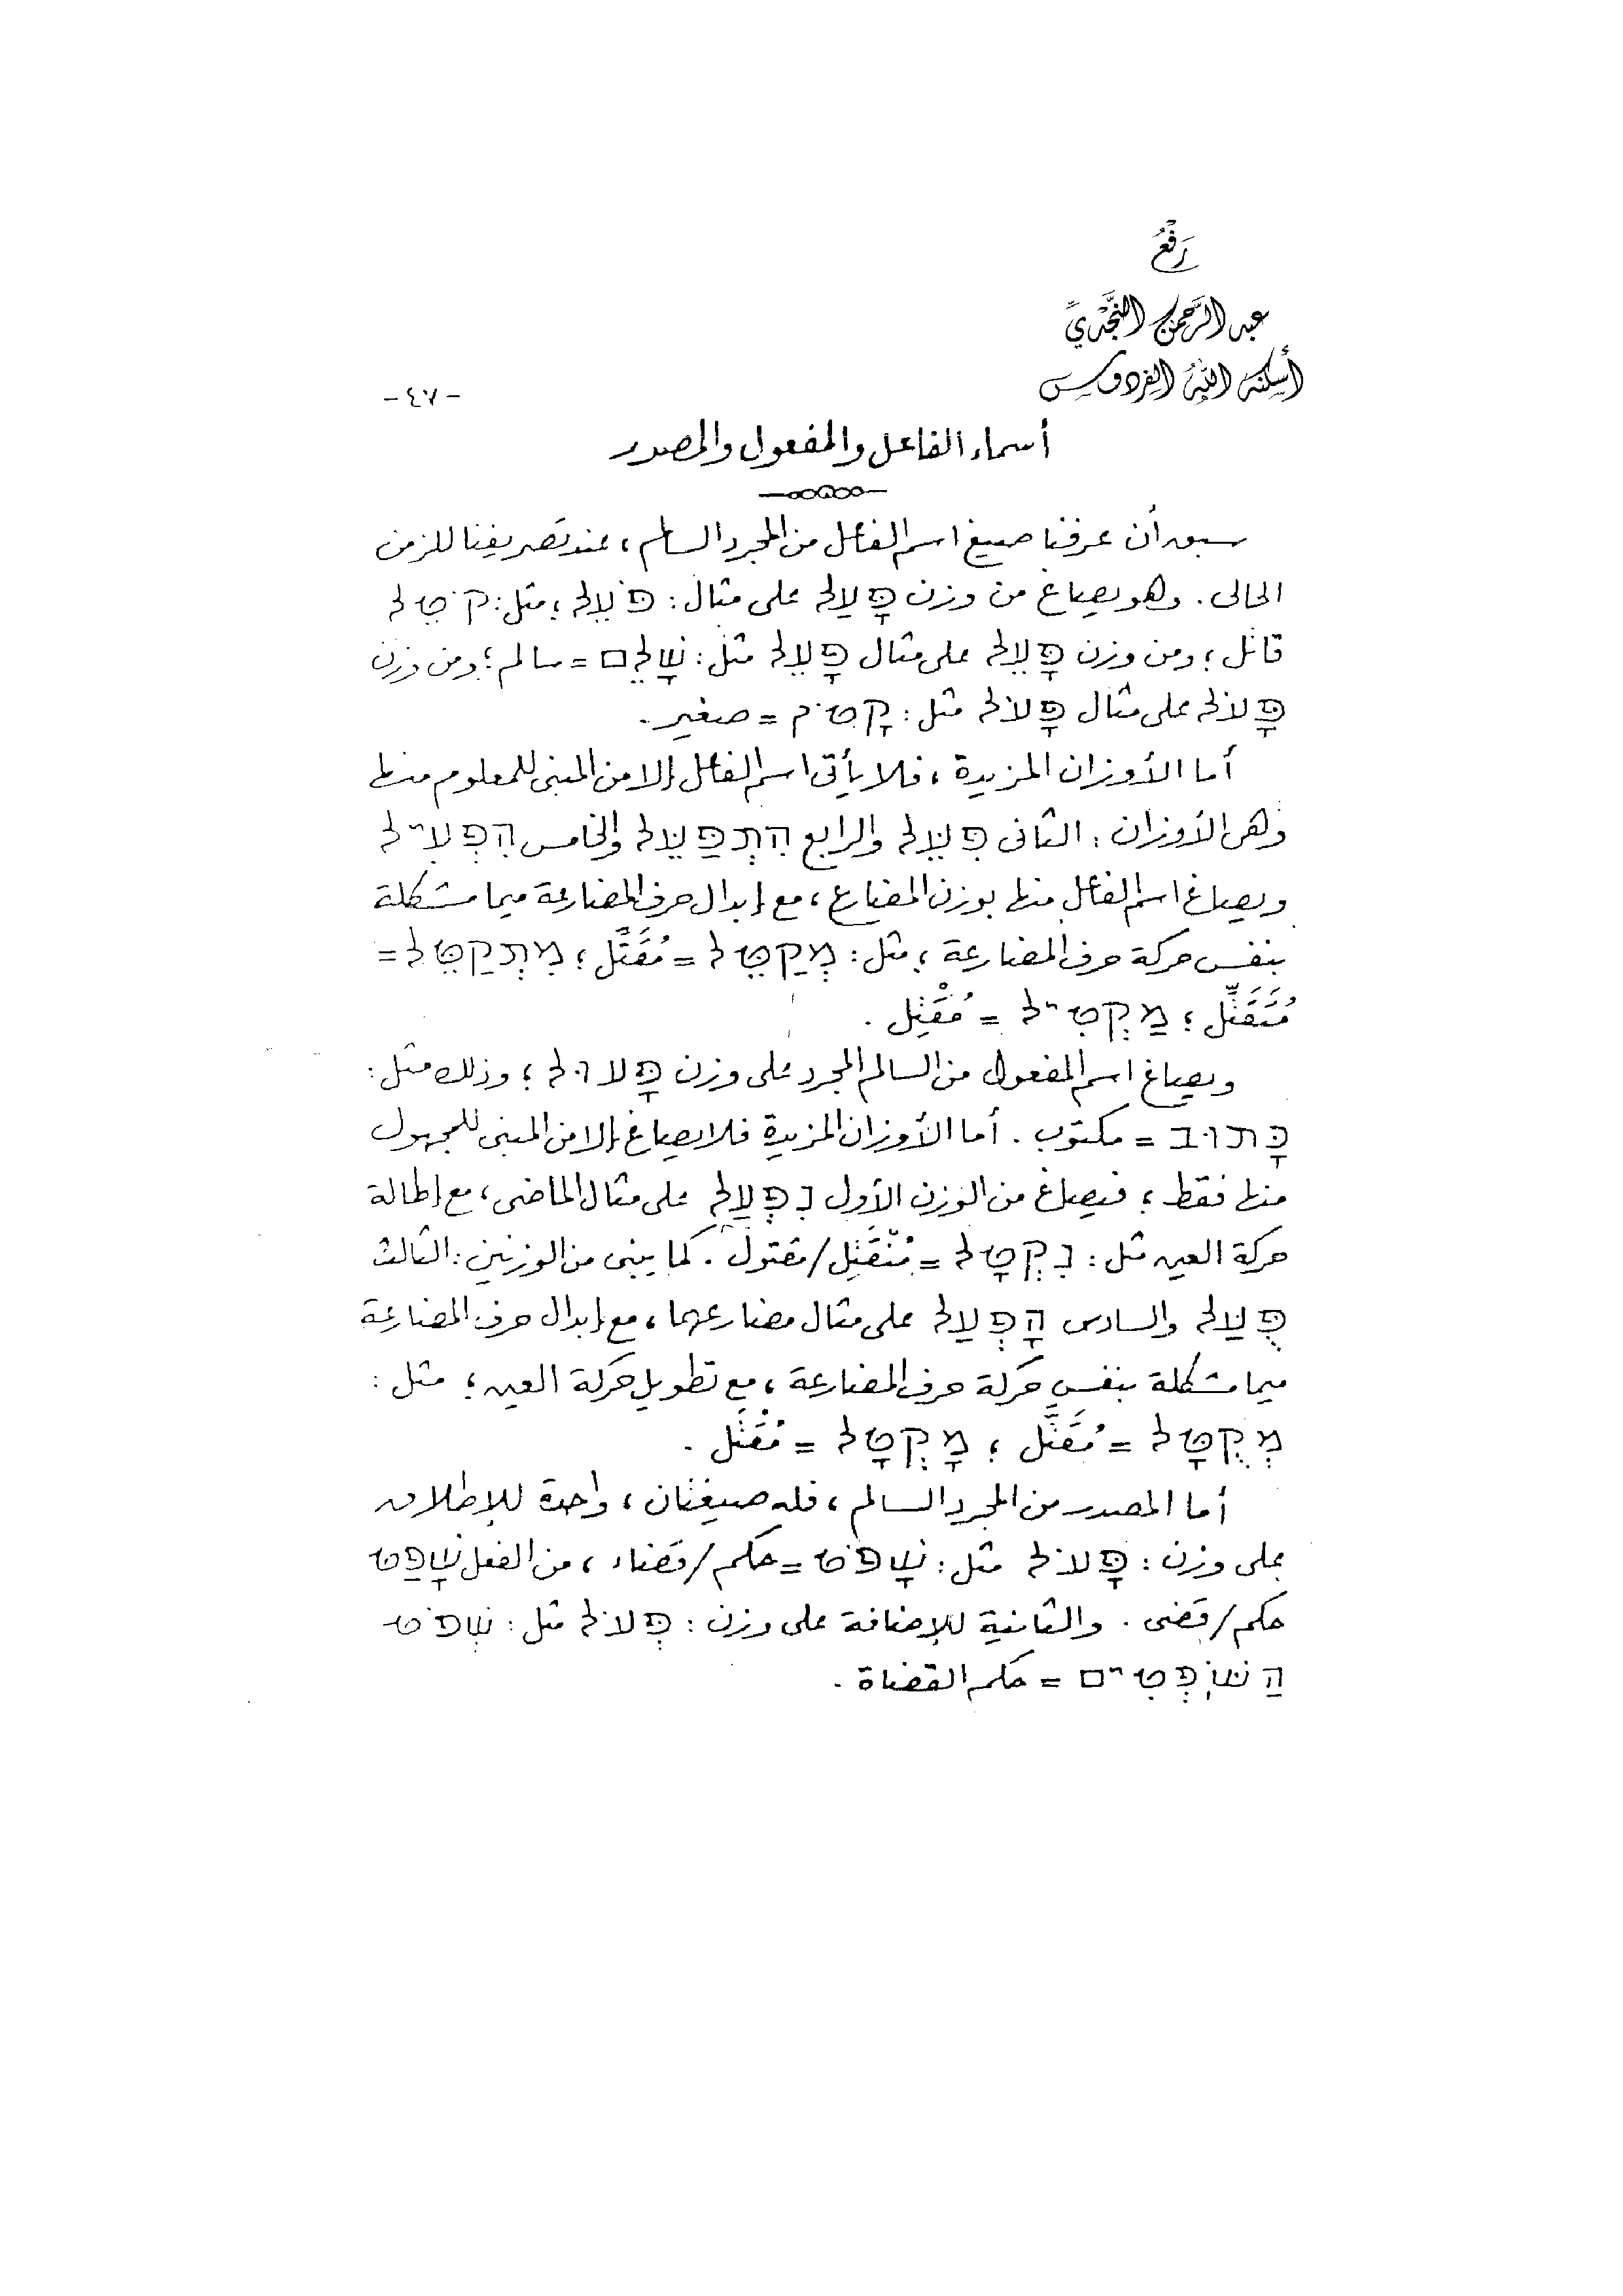 رَفْعُ
عبد الرَّحمن النَّجْديِّ
أسكنه اللهُ الفردوس
- ٤٧ -
أسماء الفاعل والمفعول والمصدر
سبق أن عرفنا صيغ اسم الفاعل من المجرد السالم ، عند تصريفنا للزمن
الحالى . وهو يصاغ من وزن פָּעַל على مثال : פֹּעֵל ؛ مثل : קֹטֵל
قاتل ؛ ومن وزن פָּעֵל على مثال פָּעֵל مثل : שָׁלֵם = سالم ؛ ومن وزن
פָּעֹל على مثال פָּעֹל مثل : קָטֹן = صغير .
أما الأوزان المزيدة ، فلا يأتى اسم الفاعل إلا من المبنى للمعلوم منها
وهى الأوزان : الثانى פִּעֵּל والرابع הִתְפַּעֵּל والخامس הִפְעִיל
ويصاغ اسم الفاعل منها بوزن المضارع ، مع إبدال حرف المضارعة ميما مشكلة
بنفس حركة حرف المضارعة ؛ مثل : מְקַטֵּל = مُقَتِّل ؛ מִתְקַטֵּל =
مُتَقَتِّل ؛ מַקְטִיל = مُقْتِل .
ويصاغ اسم المفعول من السالم المجرد على وزن פָּעוּל ؛ وذلك مثل :
כָּתוּב = مكتوب . أما الأوزان المزيدة فلا يصاغ إلا من المبنى للمجهول
منها فقط ؛ فيصاغ من الوزن الأول נִפְעַל على مثال الماضى ، مع إطالة
حركة العين مثل : נִקְטָל = مُنْقَتِل / مقتول . كما يبنى من الوزنين : الثالث
פֻּעַּל والسادس הָפְעַל على مثال مضارعهما ، مع إبدال حرف المضارعة
ميما مشكلة بنفس حركة حرف المضارعة ، مع تطويل حركة العين ؛ مثل :
מְקֻטָּל = مُقَتَّل ؛ מָקְטָל = مُقْتَل .
أما المصدر من المجرد السالم ، فله صيغتان ، واحدة للإطلاق
على وزن : פָּעֹל مثل : שָׁפֹט = حكم / قضاء ، من الفعل שָׁפַט
حكم / قضى . والثانية للإضافة على وزن : פְּעֹל مثل : שְׁפֹט
הַשּׁוֹפְטִים = حكم القضاة .